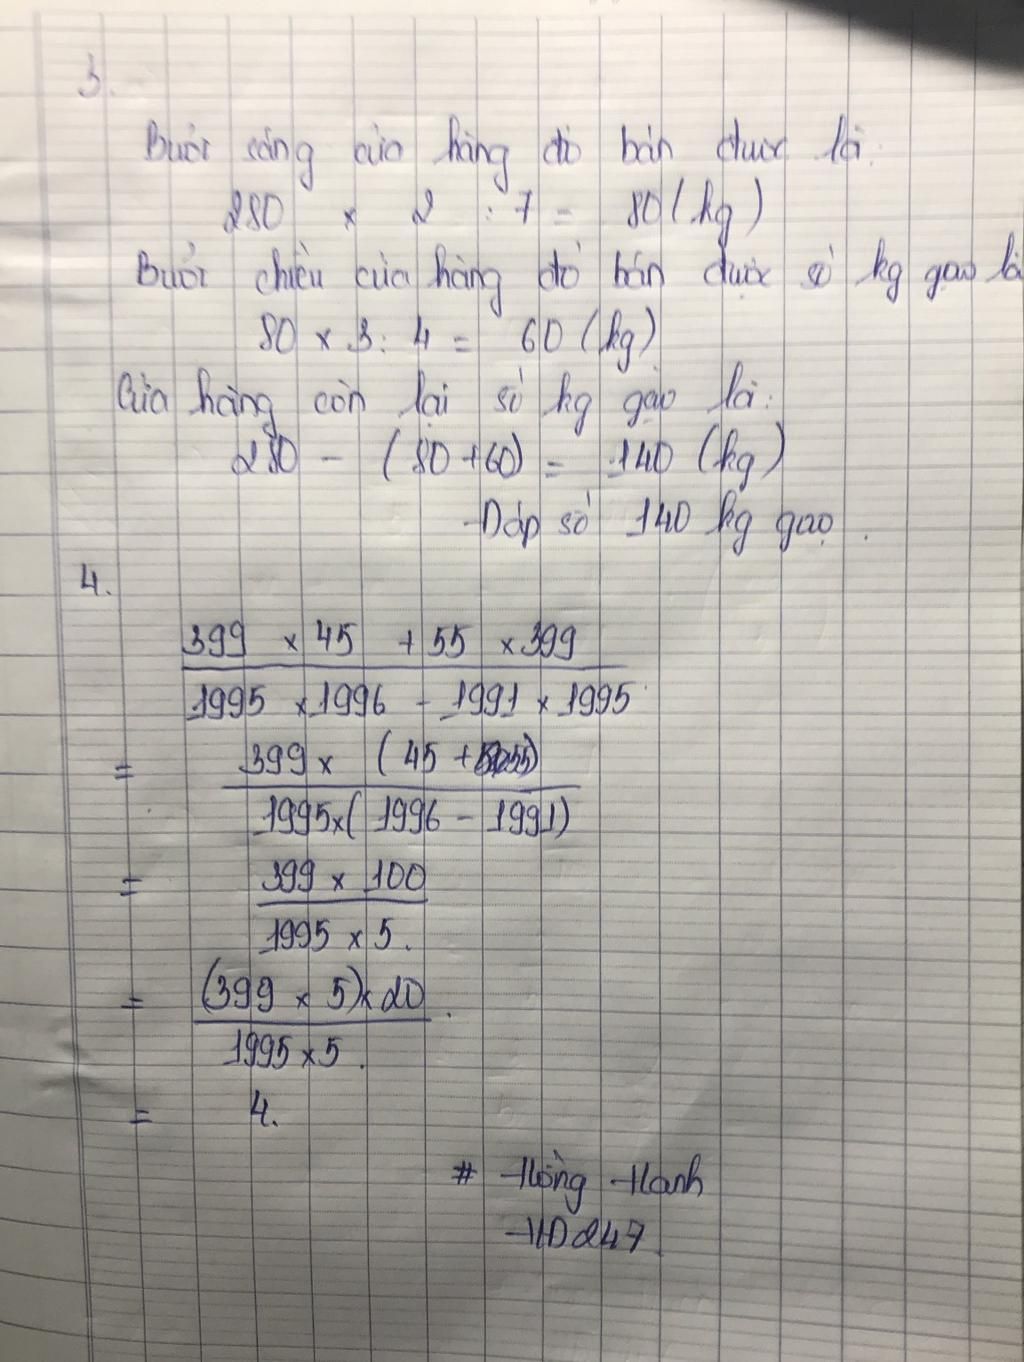 3.
Buổi sáng cửa hàng đó bán được là:
280 × 2 : 7 = 80 (kg)
Buổi chiều cửa hàng đó bán được số kg gạo là
80 × 3 : 4 = 60 (kg)
Cửa hàng còn lại số kg gạo là:
280 - (80 + 60) = 140 (kg)
Đáp số 140 kg gạo.
4.
399 × 45 + 55 × 399
1995 × 1996 - 1991 × 1995
= 399 × (45 + 55)
1995 × (1996 - 1991)
= 399 × 100
1995 × 5.
= (399 × 5) × 20.
1995 × 5.
= 4.
# Hồng Hanh
HD247